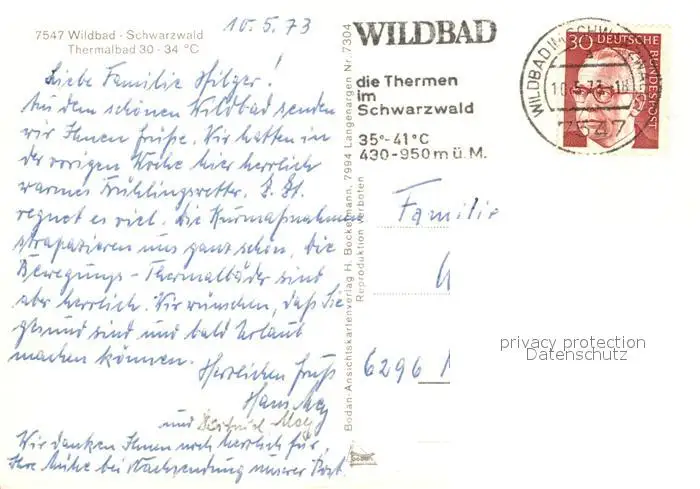 10.5.73
7547 Wildbad - Schwarzwald
Thermalbad 30 - 34 °C
Liebe Familie Hilger!
Aus dem schönen Wildbad senden
wir Ihnen Grüße. Wir hatten in
der vorigen Woche hier herrlich
warmes Frühlingswetter. Z. Zt.
regnet es viel. Die Kurmaßnahmen
strapazieren uns ganz schön. Die
Bewegungs-Thermalbäder sind
aber herrlich. Wir wünschen, daß Sie
gesund sind und bald Urlaub
machen können.
Herzlichen Gruß
Hans
und
Wir danken Ihnen noch herzlich für
Ihre Mühe bei Nachsendung unserer Post.
Bodan-Ansichtskartenverlag H. Bockelmann, 7994 Langenargen Nr. 7304
Reproduktion verboten
WILDBAD
die Thermen
im
Schwarzwald
35°-41°C
430-950m ü.M.
WILDBAD IM SCHWARZWALD
a
10.5.73-18
7547
30 DEUTSCHE
BUNDESPOST
Familie
6296
privacy protection
Datenschutz